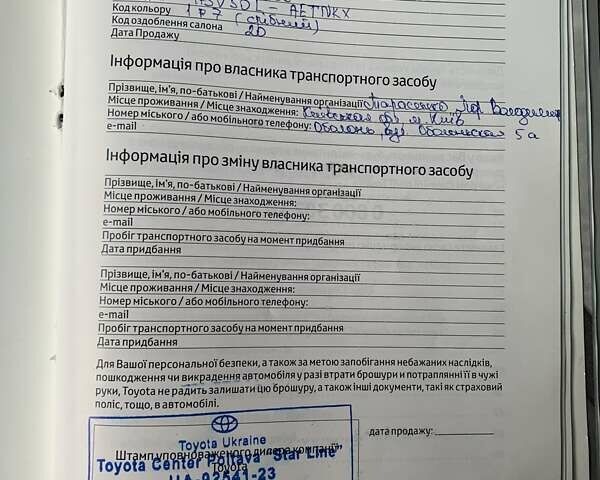 ASV50L-AETNKX
Код кольору 1F7 (срібний)
Код оздоблення салона 20
Дата Продажу
Інформація про власника транспортного засобу
Прізвище, ім'я, по-батькові / Найменування організації Тарасенко Ігор
Місце проживання / Місце знаходження: Київська обл м. Київ
Номер міського / або мобільного телефону: Оболонь, вул. 5а
e-mail
Інформація про зміну власника транспортного засобу
Прізвище, ім'я, по-батькові / Найменування організації
Місце проживання / Місце знаходження:
Номер міського / або мобільного телефону:
e-mail
Пробіг транспортного засобу на момент придбання
Дата придбання
Прізвище, ім'я, по-батькові / Найменування організації
Місце проживання / Місце знаходження:
Номер міського / або мобільного телефону:
e-mail
Пробіг транспортного засобу на момент придбання
Дата придбання
Для Вашої персональної безпеки, а також за метою запобігання небажаних наслідків,
пошкодження чи викрадення автомобіля у разі втрати брошури и потраплянні її в чужі
руки, Toyota не радить залишати цю брошуру, а також інші документи, такі як страховий
поліс, тощо, в автомобілі.
дата продажу:
Toyota Ukraine
Штамп уповноваженого дилера компанії
Toyota Center Poltava "Star Line"
Toyota
UA-92541-23